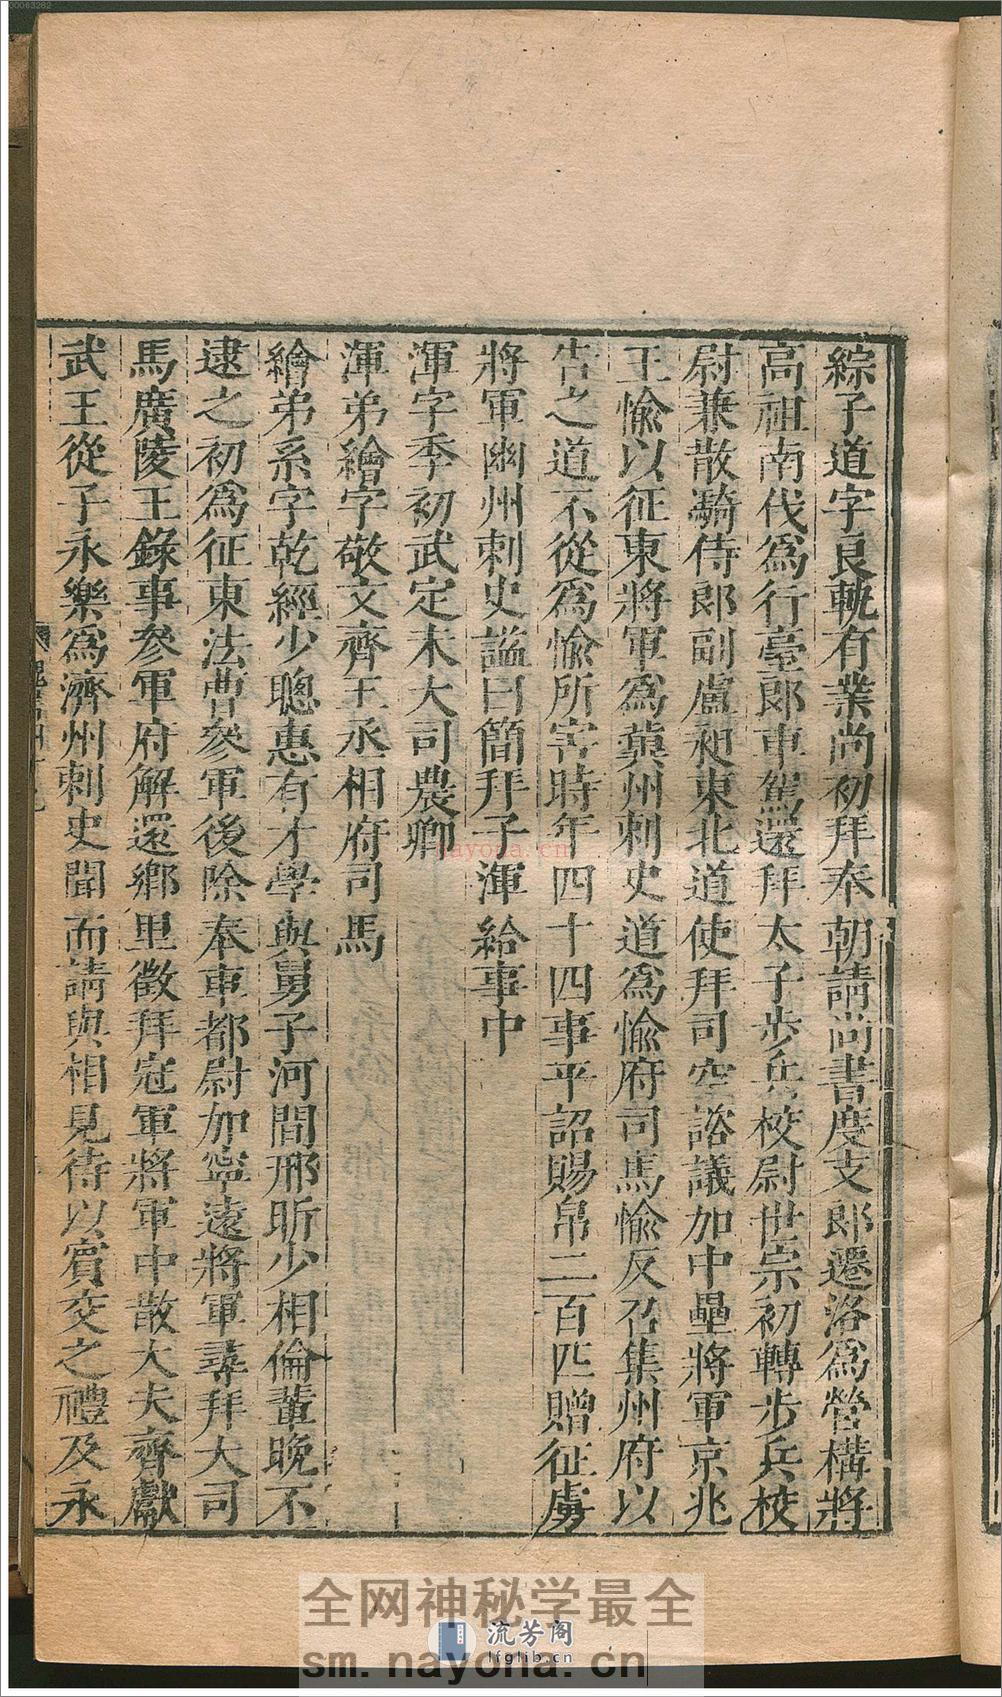 綜子道字良軌有業尚初拜奉朝請尚書度支郎遷洛爲營構將
高祖南伐爲行臺郎車駕還拜太子步兵校尉世宗初轉步兵校
尉兼散騎侍郎副盧昶東北道使拜司空諮議加中壘將軍京兆
王愉以征東將軍爲冀州刺史道爲愉府司馬愉反召集州府以
告之道不從爲愉所害時年四十四事平詔賜帛二百匹贈征虜
將軍幽州刺史謚曰簡拜子渾給事中
渾字季初武定末大司農卿
渾弟繪字敬文齊王丞相府司馬
繪弟系字乾經少聰惠有才學與舅子河間邢昕少相倫輩晚不
逮之初爲征東法曹參軍後除奉車都尉加寧遠將軍尋拜大司
馬廣陵王錄事參軍府解還鄉里徵拜冠軍將軍中散大夫齊獻
武王從子永樂爲濟州刺史聞而請與相見待以賓交之禮及永
00063282
nayona.cn
全网神秘学最全
流芳阁
lfglib.cn
sm.nayona.cn